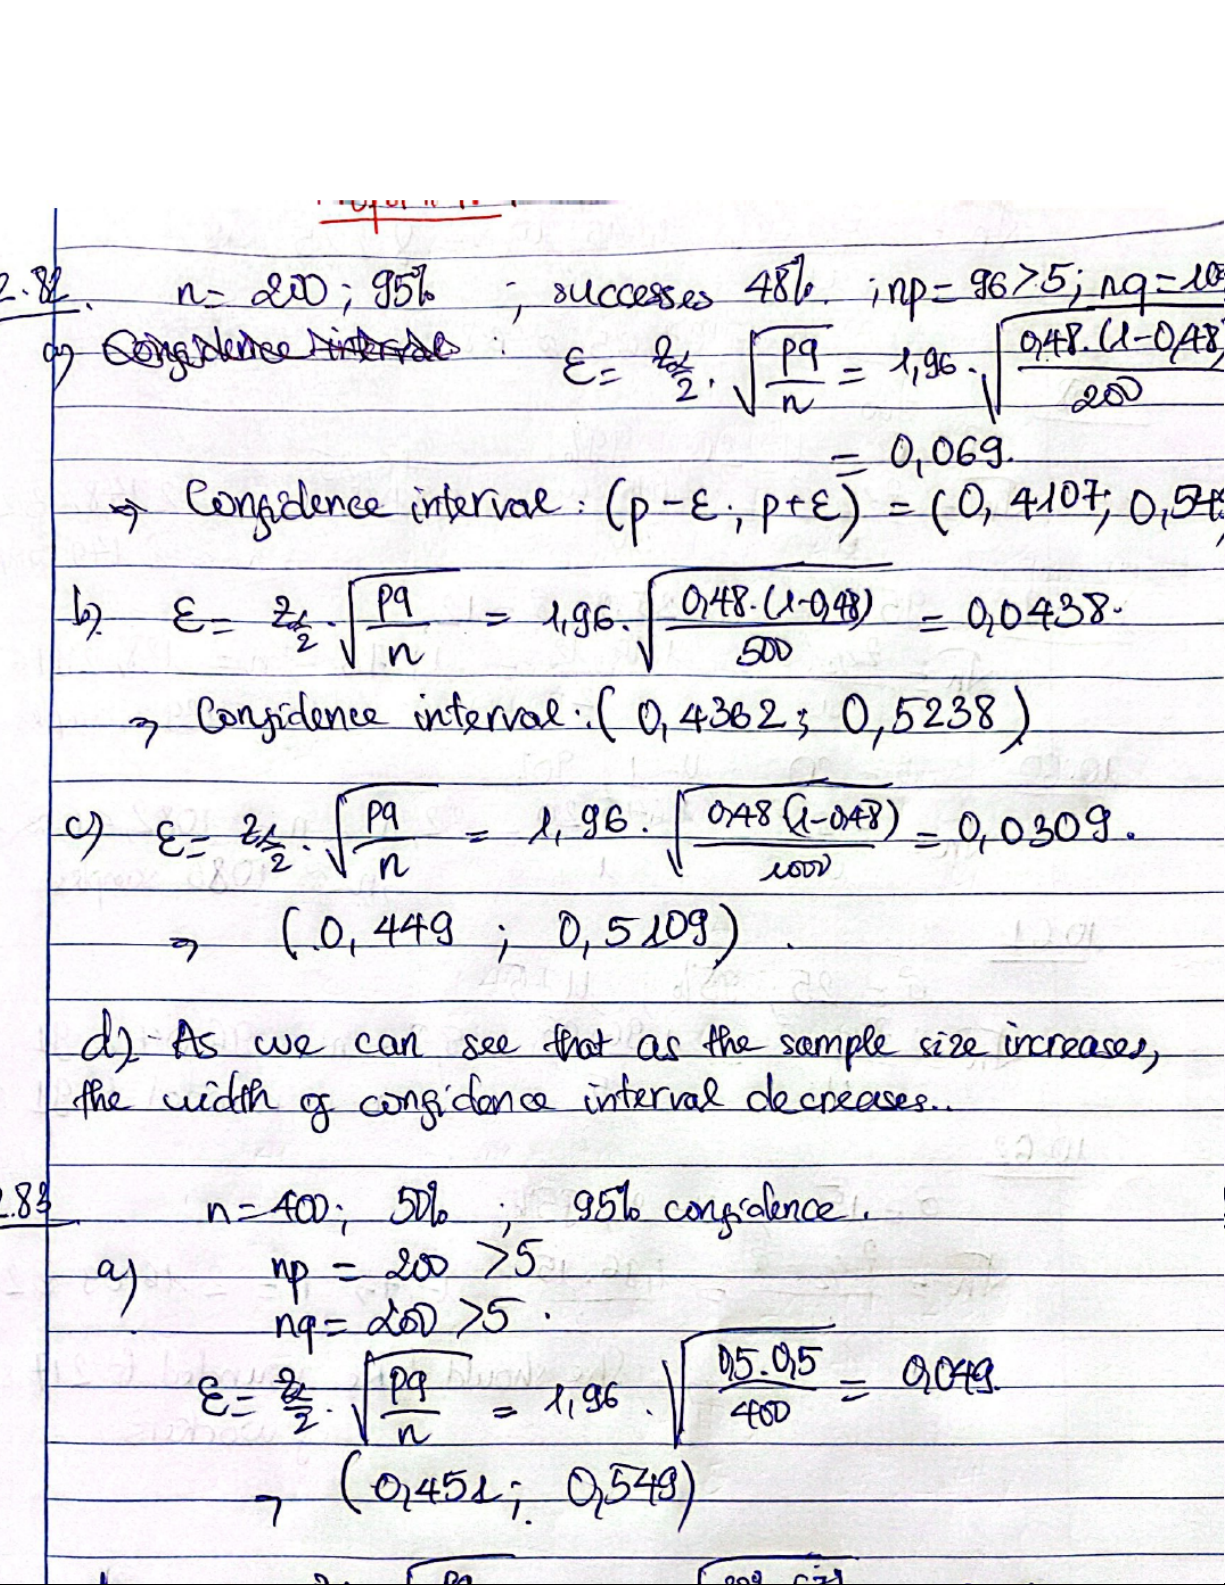 2.82. n = 200 ; 95% ; successes 48%. ; np = 96 > 5 ; nq = 10
a) Confidence interval : ε = z_{α/2} · √(pq/n) = 1,96 · √(0,48 · (1 - 0,48)/200)
= 0,069.
→ Confidence interval : (p - ε ; p + ε) = (0, 4107; 0,54
b) ε = z_{α/2} · √(pq/n) = 1,96 · √(0,48 · (1 - 0,48)/500) = 0,0438.
→ Confidence interval : ( 0, 4362 ; 0, 5238 )
c) ε = z_{α/2} · √(pq/n) = 1, 96 · √(0,48 (1 - 0,48)/1000) = 0, 0309 .
→ ( 0, 449 ; 0, 5109 ) .
d) As we can see that as the sample size increases,
the width of confidence interval decreases..
2.83 n = 400 ; 50% ; 95% confidence .
a) np = 200 > 5
nq = 200 > 5 .
ε = z_{α/2} · √(pq/n) = 1,96 · √(0,5 . 0,5/400) = 0,049.
→ ( 0,451 ; 0,549 )